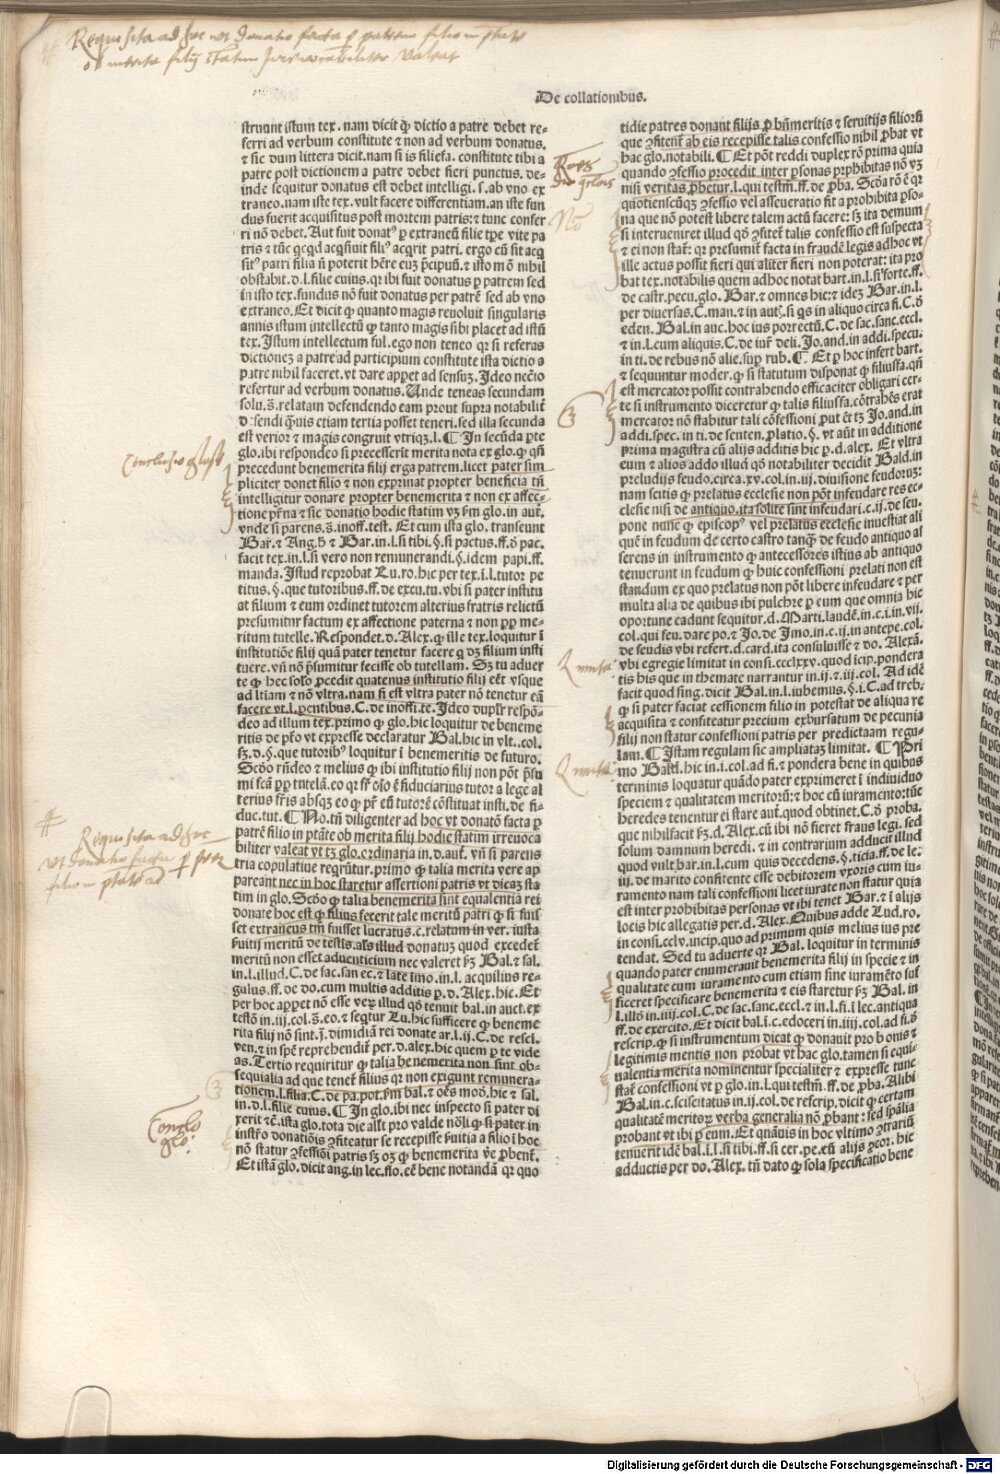 Requisita ad hoc ut donatio facta p patrem filio in ptate
ob merita filij statim irrevocabiliter valeat
De collationibus.
struunt istum tex. nam dicit ꝙ dictio a patre debet re⸗
ferri ad verbum constitute ⁊ non ad verbum donatus.
⁊ sic dum littera dicit. nam si is filiefa. constitute tibi a
patre post dictionem a patre debet fieri punctus. de⸗
inde sequitur donatus est debet intelligi. s. ab vno ex
traneo. nam iste tex. vult facere differentiam. an iste fun
dus fuerit acquisitus post mortem patris: ⁊ tunc confer
ri nō debet. Aut fuit donatꝰ p extraneū filie tpe vite pa
tris ⁊ tūc qcqd acqsiuit filiꝰ acqrit patri. ergo cū sit acq
sitꝰ patri filia ñ poterit hēre euꝫ p̄cipuū. ⁊ isto mō nihil
obstabit. d. l. filie cuius. qꝛ ibi fuit donatus p patrem sed
in isto tex. fundus nō fuit donatus per patrē sed ab vno
extraneo. Et dicit ꝙ quanto magis reuoluit singularis
annis istum intellectū ꝙ tanto magis sibi placet ad istū
tex. Istum intellectum ful. ego non teneo qꝛ si referas
dictionez a patre ad participium constitute ista dictio a
patre nihil faceret. vt dare appꝫ ad sensuꝫ. Ideo necīo
refertur ad verbum donatus. Unde teneas secundam
solu. s̄. relatam defendendo eam prout supra notabilit̄
d̄:sendi qͣuis etiam tertia posset teneri. sed illa secunda
est verior ⁊ magis congruit vtriqꝫ. l. ¶ In secūda pte
glo. ibi respondeo si precesserit merita nota ex glo. ꝙ qñ
precedunt benemerita filij erga patrem. licet pater sim
pliciter donet filio ⁊ non exprimat propter beneficia tñ
intelligitur donare propter benemerita ⁊ non ex affec⸗
tione pr̄na ⁊ sic donatio hodie statim vꝫ s̄m glo. in aut̄.
vnde si parens. s̄. inoff. test. Et cum ista glo. transeunt
Bar. ⁊ Ang. ⁊ Bar. in. l. si tibi. §. si pactus. ff. ō pac.
facit tex. in. l. si vero non remunerandi. §. idem papi. ff.
manda. Istud reprobat Lu. ro. hic per tex. ī. l. tutor pe
titus. §. que tutoribus. ff. de excu. tu. vbi si pater institu
at filium ⁊ eum ordinet tutorem alterius fratris relictū
presumitur factum ex affectione paterna ⁊ non ꝓp̄ me⸗
ritum tutelle. Respondet. d. Alex. ꝙ ille tex. loquitur ī
institutiōe filij quā pater tenetur facere q dꝫ filium insti
tuere. vñ nō p̄sumitur fecisse ob tutellam. Sꝫ tu aduer
te ꝙ hec solō ꝓcedit quatenus institutio filij eēt vsque
ad ltiam ⁊ nō vltra. nam si est vltra pater nō tenetur eā
facere vt. l. pentibus. C. de inoffi. te. Ideo duplr̄ respō⸗
deo ad illum tex. primo ꝙ glo. hic loquitur de beneme
ritis de pr̄to vt expresse declaratur Bal. hic in vlt. col.
sꝫ. d. §. que tutoribꝰ loquitur ī benemeritis de futuro.
Scōo rñdeo ⁊ melius ꝙ ibi institutio filij non pōt p̄su
mi fcā p̄p̄ tutelā. eo qꝛ fr̄ ōsō ē fiduciarius tutor a lege al
terius fr̄is absqꝫ eo ꝙ pr̄ eū tutorē cōstituat insti. de fi⸗
duc. tut. ¶ No. tñ diligenter ad hoc vt donatō facta p
patrē filio in ptāte ob merita filij hodie statim irreuoca
biliter valeat vt tꝫ glo. ordinaria in. d. aut̄. vñ si parens
tria copulatiue reqrūtur. primo ꝙ talia merita vere ap
pareant nec in hoc staretur assertioni patris vt dicaꝫ sta
tim in glo. Scōo ꝙ talia benemerita sint equalentia rei
donate hoc est ꝙ filius fecerit tale meritū patri ꝙ si fuis
set extraneus tm̄ fuisset lucratus. c. relatum in ver. iusta
suitij meritū de testis. als illud donatuꝫ quod excedet̄
meritū non esset aduenticium nec valeret s̄ꝫ Bal. ⁊ sal.
in. l. illud. C. de sac. san. ec. ⁊ late imo. in. l. acquilius re⸗
gulus. ff. de do. cum multis additis p. d. Alex. hic. Et
per hoc appꝫ nō esse veꝫ illud qd tenuit bal. in auct. ex
testō in. iij. col. s̄. eo. ⁊ seqtur Lu. hic sufficere ꝙ beneme
rita filij non sint. j. dimidiā rei donate ar. l. ij. C. de rescī.
ven. ⁊ in spē reprehendit̄ per. d. alex. hic quem p te vide
as. Tertio requiritur ꝙ talia benemerita non sint ob⸗
sequialia ad que tenet̄ filius qꝛ non exigunt remunera⸗
tionem. l. filia. C. de pa. pot. s̄m bal. ⁊ oēs moō. hic ⁊ sal.
in. d. l. filie cuius. ¶ In glo. ibi nec inspecto si pater di
xerit ⁊c̄. ista glo. tota die allr̄t pro valde nōli ꝙ si pater in
instr̄o donatiōis ꝯfiteatur se recepisse s̄uitia a filio ī hoc
nō statur ꝯfessiōi patris sꝫ oꝫ ꝙ benemerita ve p̄bent̄.
Et istā glo. dicit ang. in lec. flo. eē bene notandā qꝛ quo
tidie patres donant filijs ꝓ bñmeritis ⁊ seruitijs filiorū
que ꝯfitent̄ ab eis recepisse talis confessio nihil ꝓbat vt
hac glo. notabili. ¶ Et pōt reddi duplex rō prima quia
quando ꝯfessio procedit inter psonas prohibitas nō vꝫ
nisi veritas ꝓbetur. l. qui testm̄. ff. de ꝓba. Scōa rō ē qꝛ
quotienscūqꝫ ꝯfessio vel asseueratio fit a prohibita pso⸗
na que nō potest libere talem actū facere: sꝫ ita demum
si interueniret illud qd ꝯfitet̄ talis confessio est suspecta
⁊ ei non stat̄: qꝛ presumit̄ facta in fraudē legis adhoc vt
ille actus possit fieri qui aliter fieri non poterat: ita pro
bat tex. notabilis quem adhoc notat bart. in. l. si forte. ff.
de castr. pecu. glo. Bar. ⁊ omnes hic: ⁊ ideꝫ Bar. in. l.
per diuersas. C. man. ⁊ in aut̄. si qs in aliquo circa fi. C. ō
eden. Bal. in auc. hoc ius porrectū. C. de sac. sanc. eccl.
⁊ in. l. cum aliquis. C. de iur̄ deli. Jo. and. in addi. specu.
in ti. de rebus nō alie. sup rub. ¶ Et p hoc infert bart.
⁊ sequuntur moder. ꝙ si statutum disponat ꝙ filiusfa. qñ
est mercator possit contrahendo efficaciter obligari cer⸗
te si instrumento diceretur ꝙ talis filiusfa. cōtrahēs erat
mercator nō stabitur tali cōfessioni put ē tꝫ Jo. and. in
addi. spec. in ti. de senten. platio. §. vt aūt in additione
prima magistra cū alijs additis hic p. d. alex. Et vltra
eum ⁊ alios addo illud qd notabiliter decidit Bald. in
preludijs feudo. circa. xv. col. in. iij. diuisione feudoruꝫ:
nam scitis ꝙ prelatus ecclesie non pōt infeudare res ec⸗
clesie nisi de antiquo. ita solite sint infeudari. c. ij. de feu.
pone nunc ꝙ episcopꝰ vel prelatus ecclesie inuestiat ali
quē in feudum de certo castro tanqꝫ de feudo antiquo as
serens in instrumento ꝙ antecessores istius ab antiquo
tenuerunt in feudum ꝙ huic confessioni prelati non est
standum ex quo prelatus non pōt libere infeudare ⁊ per
multa alia de quibus ibi pulchre p eum que omnia hic
oportune cadunt sequitur. d. Marti. laudē. in. c. i. in. vij.
col. qui feu. dare po. ⁊ Jo. de Imo. in. c. ij. in antepe. col.
de feudis vbi refert. d. card. ita consuluisse ⁊ do. Alexā.
vbi egregie limitat in consi. ccclxxv. quod icip. pondera
tis his que in themate narrantur in. ij. ⁊ iij. col. Ad idē
facit quod sing. dicit Bal. in. l. iubemus. §. i. C. ad treb.
ꝙ si pater faciat cessionem filio in potestat̄ de aliqua re
acquisita ⁊ confiteatur precium exbursatum de pecunia
filij non statur confessioni patris per predictaam regu⸗
lam. ¶ Istam regulam sic ampliataꝫ limitat. ¶ Pri
mo Bald. hic in. i. col. ad fi. ⁊ pondera bene in quibus
terminis loquatur quādo pater exprimeret ī indiuiduo
speciem ⁊ qualitatem meritorū: ⁊ hoc cū iuramento: tūc
heredes tenentur ei stare aut̄. quod obtinet. C. ō proba.
que nihilfacit s̄ꝫ. d. Alex. cū ibi nō fieret fraus legi. sed
solum damnum heredi. ⁊ in contrarium adducit illud
quod vult bar. in. l. cum quis decedens. §. ticia. ff. de le.
iij. de marito confitente esse debitorem vxoris cum iu⸗
ramento nam tali confessioni licet iurate non statur quia
est inter prohibitas personas vt ibi tenet Bar. ⁊ ī alijs
locis hic allegatis per. d. Alex. Quibus adde Lud. ro.
in consi. cclv. incip. quo ad primum quis melius ius pre
tendat. Sed tu aduerte qꝛ Bal. loquitur in terminis
quando pater enumerauit benemerita filij in specie ⁊ in
qualitate cum iuramento cum etiam sine iuramēto suf
ficeret specificare benemerita ⁊ eis staretur s̄ꝫ Bal. in
l. illō in. iiij. col. C. de sac. sanc. eccl. ⁊ in. l. fi. ī lec. antiqua
ff. de exercito. Et dicit bal. ī. c. edoceri in. iiij. col. ad fi. ō
rescrip. ꝙ si instrumentum dicat ꝙ donauit pro bonis ⁊
legitimis mentis non probat vt hac glo. tamen si equi⸗
ualentia merita nominentur specialiter ⁊ expresse tunc
stat̄ confessioni vt p glo. in. l. qui testm̄. ff. de ꝓba. Alibi
Bal. in. c. sciscitatus in. ij. col. de rescrip. dicit ꝙ certam
qualitatē meritoꝝ verba generalia nō ꝓbant: sed spālia
probant vt ibi p eum. Et qnāuis in hoc vltimo ꝯtrariū
tenuerit idē bal. i. l. si tibi. ff. si cer. pe. eū alijs ꝯcor. hic
adductis per do. Alex. tñ dato ꝙ sola specificatio bene
Conclusio glose
Requisita ad hoc
ut donatio facta p patrem
filio in ptate
Conclo
glo.
No
Digitalisierung gefördert durch die Deutsche Forschungsgemeinschaft - DFG